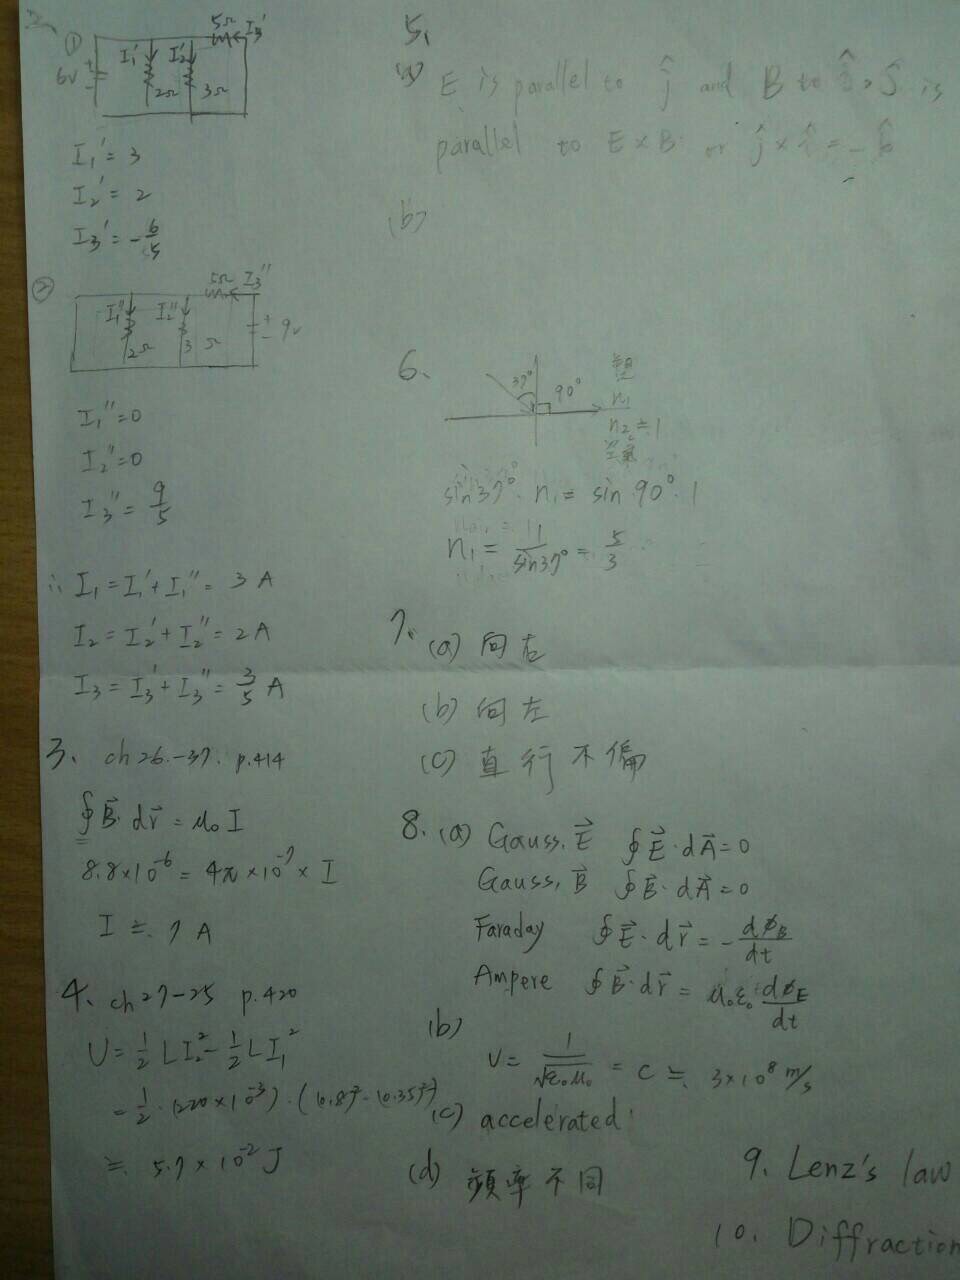 2、
① 5Ω I₃'
I₁' I₂'
6V + - 2Ω 3Ω
I₁' = 3
I₂' = 2
I₃' = -6/5
② 5Ω I₃''
I₁'' I₂'' + - 9v
2Ω 3Ω
I₁'' = 0
I₂'' = 0
I₃'' = 9/5
∴ I₁ = I₁' + I₁'' = 3 A
I₂ = I₂' + I₂'' = 2 A
I₃ = I₃' + I₃'' = 3/5 A
3、 ch 26.-37. p.414
∮B⃗·dr⃗ = μ₀ I
8.8×10⁻⁶ = 4π×10⁻⁷ × I
I ≒ 7 A
4、 ch 27-25 p.420
U = 1/2 LI₂² - 1/2 LI₁²
= 1/2·(220×10⁻³)·(0.8² - 0.35²)
≒ 5.7 × 10⁻² J
5、
(a) E is parallel to ĵ and B to î, S is
parallel to E × B or ĵ × î = -k̂
(b)
6、 37° 90° n₁
n₂ ≒ 1
空氣
sin37°·n₁ = sin 90°·1
n₁ = 1/sin37° = 5/3
7、 (a) 向右
(b) 向左
(c) 直行不偏
8、 (a) Gauss, E⃗ ∮E⃗·dA⃗ = 0
Gauss, B⃗ ∮B⃗·dA⃗ = 0
Faraday ∮E⃗·dr⃗ = - dΦB/dt
Ampere ∮B⃗·dr⃗ = μ₀ε₀ dΦE/dt
(b)
v = 1/√ε₀μ₀ = c ≒ 3×10⁸ m/s
(c) accelerated
(d) 頻率不同
9、 Lenz's law
10、 Diffraction